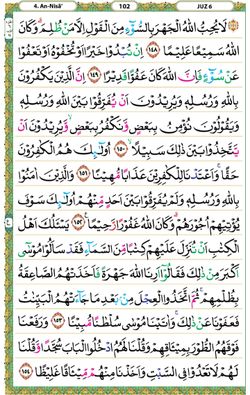 4. An-Nisā' 102 JUZ 6
لَا يُحِبُّ اللّٰهُ الْجَهْرَ بِالسُّوْۤءِ مِنَ الْقَوْلِ اِلَّا مَنْ ظُلِمَ ۗ وَكَانَ
اللّٰهُ سَمِيْعًا عَلِيْمًا ١٤٨ اِنْ تُبْدُوْا خَيْرًا اَوْ تُخْفُوْهُ اَوْ تَعْفُوْا
عَنْ سُوْۤءٍ فَاِنَّ اللّٰهَ كَانَ عَفُوًّا قَدِيْرًا ١٤٩ اِنَّ الَّذِيْنَ يَكْفُرُوْنَ
بِاللّٰهِ وَرُسُلِهٖ وَيُرِيْدُوْنَ اَنْ يُّفَرِّقُوْا بَيْنَ اللّٰهِ وَرُسُلِهٖ
وَيَقُوْلُوْنَ نُؤْمِنُ بِبَعْضٍ وَّنَكْفُرُ بِبَعْضٍ ۙ وَّيُرِيْدُوْنَ اَنْ
يَّتَّخِذُوْا بَيْنَ ذٰلِكَ سَبِيْلًا ۙ ١٥٠ اُولٰۤىِٕكَ هُمُ الْكٰفِرُوْنَ
حَقًّا ۚ وَاَعْتَدْنَا لِلْكٰفِرِيْنَ عَذَابًا مُّهِيْنًا ١٥١ وَالَّذِيْنَ اٰمَنُوْا
بِاللّٰهِ وَرُسُلِهٖ وَلَمْ يُفَرِّقُوْا بَيْنَ اَحَدٍ مِّنْهُمْ اُولٰۤىِٕكَ سَوْفَ
يُؤْتِيْهِمْ اُجُوْرَهُمْ ۗ وَكَانَ اللّٰهُ غَفُوْرًا رَّحِيْمًا ١٥٢ يَسْـَٔلُكَ اَهْلُ
الْكِتٰبِ اَنْ تُنَزِّلَ عَلَيْهِمْ كِتٰبًا مِّنَ السَّمَاۤءِ فَقَدْ سَاَلُوْا مُوْسٰٓى
اَكْبَرَ مِنْ ذٰلِكَ فَقَالُوْٓا اَرِنَا اللّٰهَ جَهْرَةً فَاَخَذَتْهُمُ الصَّاعِقَةُ
بِظُلْمِهِمْ ۚ ثُمَّ اتَّخَذُوا الْعِجْلَ مِنْۢ بَعْدِ مَا جَاۤءَتْهُمُ الْبَيِّنٰتُ
فَعَفَوْنَا عَنْ ذٰلِكَ ۚ وَاٰتَيْنَا مُوْسٰى سُلْطٰنًا مُّبِيْنًا ١٥٣ وَرَفَعْنَا
فَوْقَهُمُ الطُّوْرَ بِمِيْثَاقِهِمْ وَقُلْنَا لَهُمُ ادْخُلُوا الْبَابَ سُجَّدًا وَّقُلْنَا
لَهُمْ لَا تَعْدُوْا فِى السَّبْتِ وَاَخَذْنَا مِنْهُمْ مِّيْثَاقًا غَلِيْظًا ١٥٤